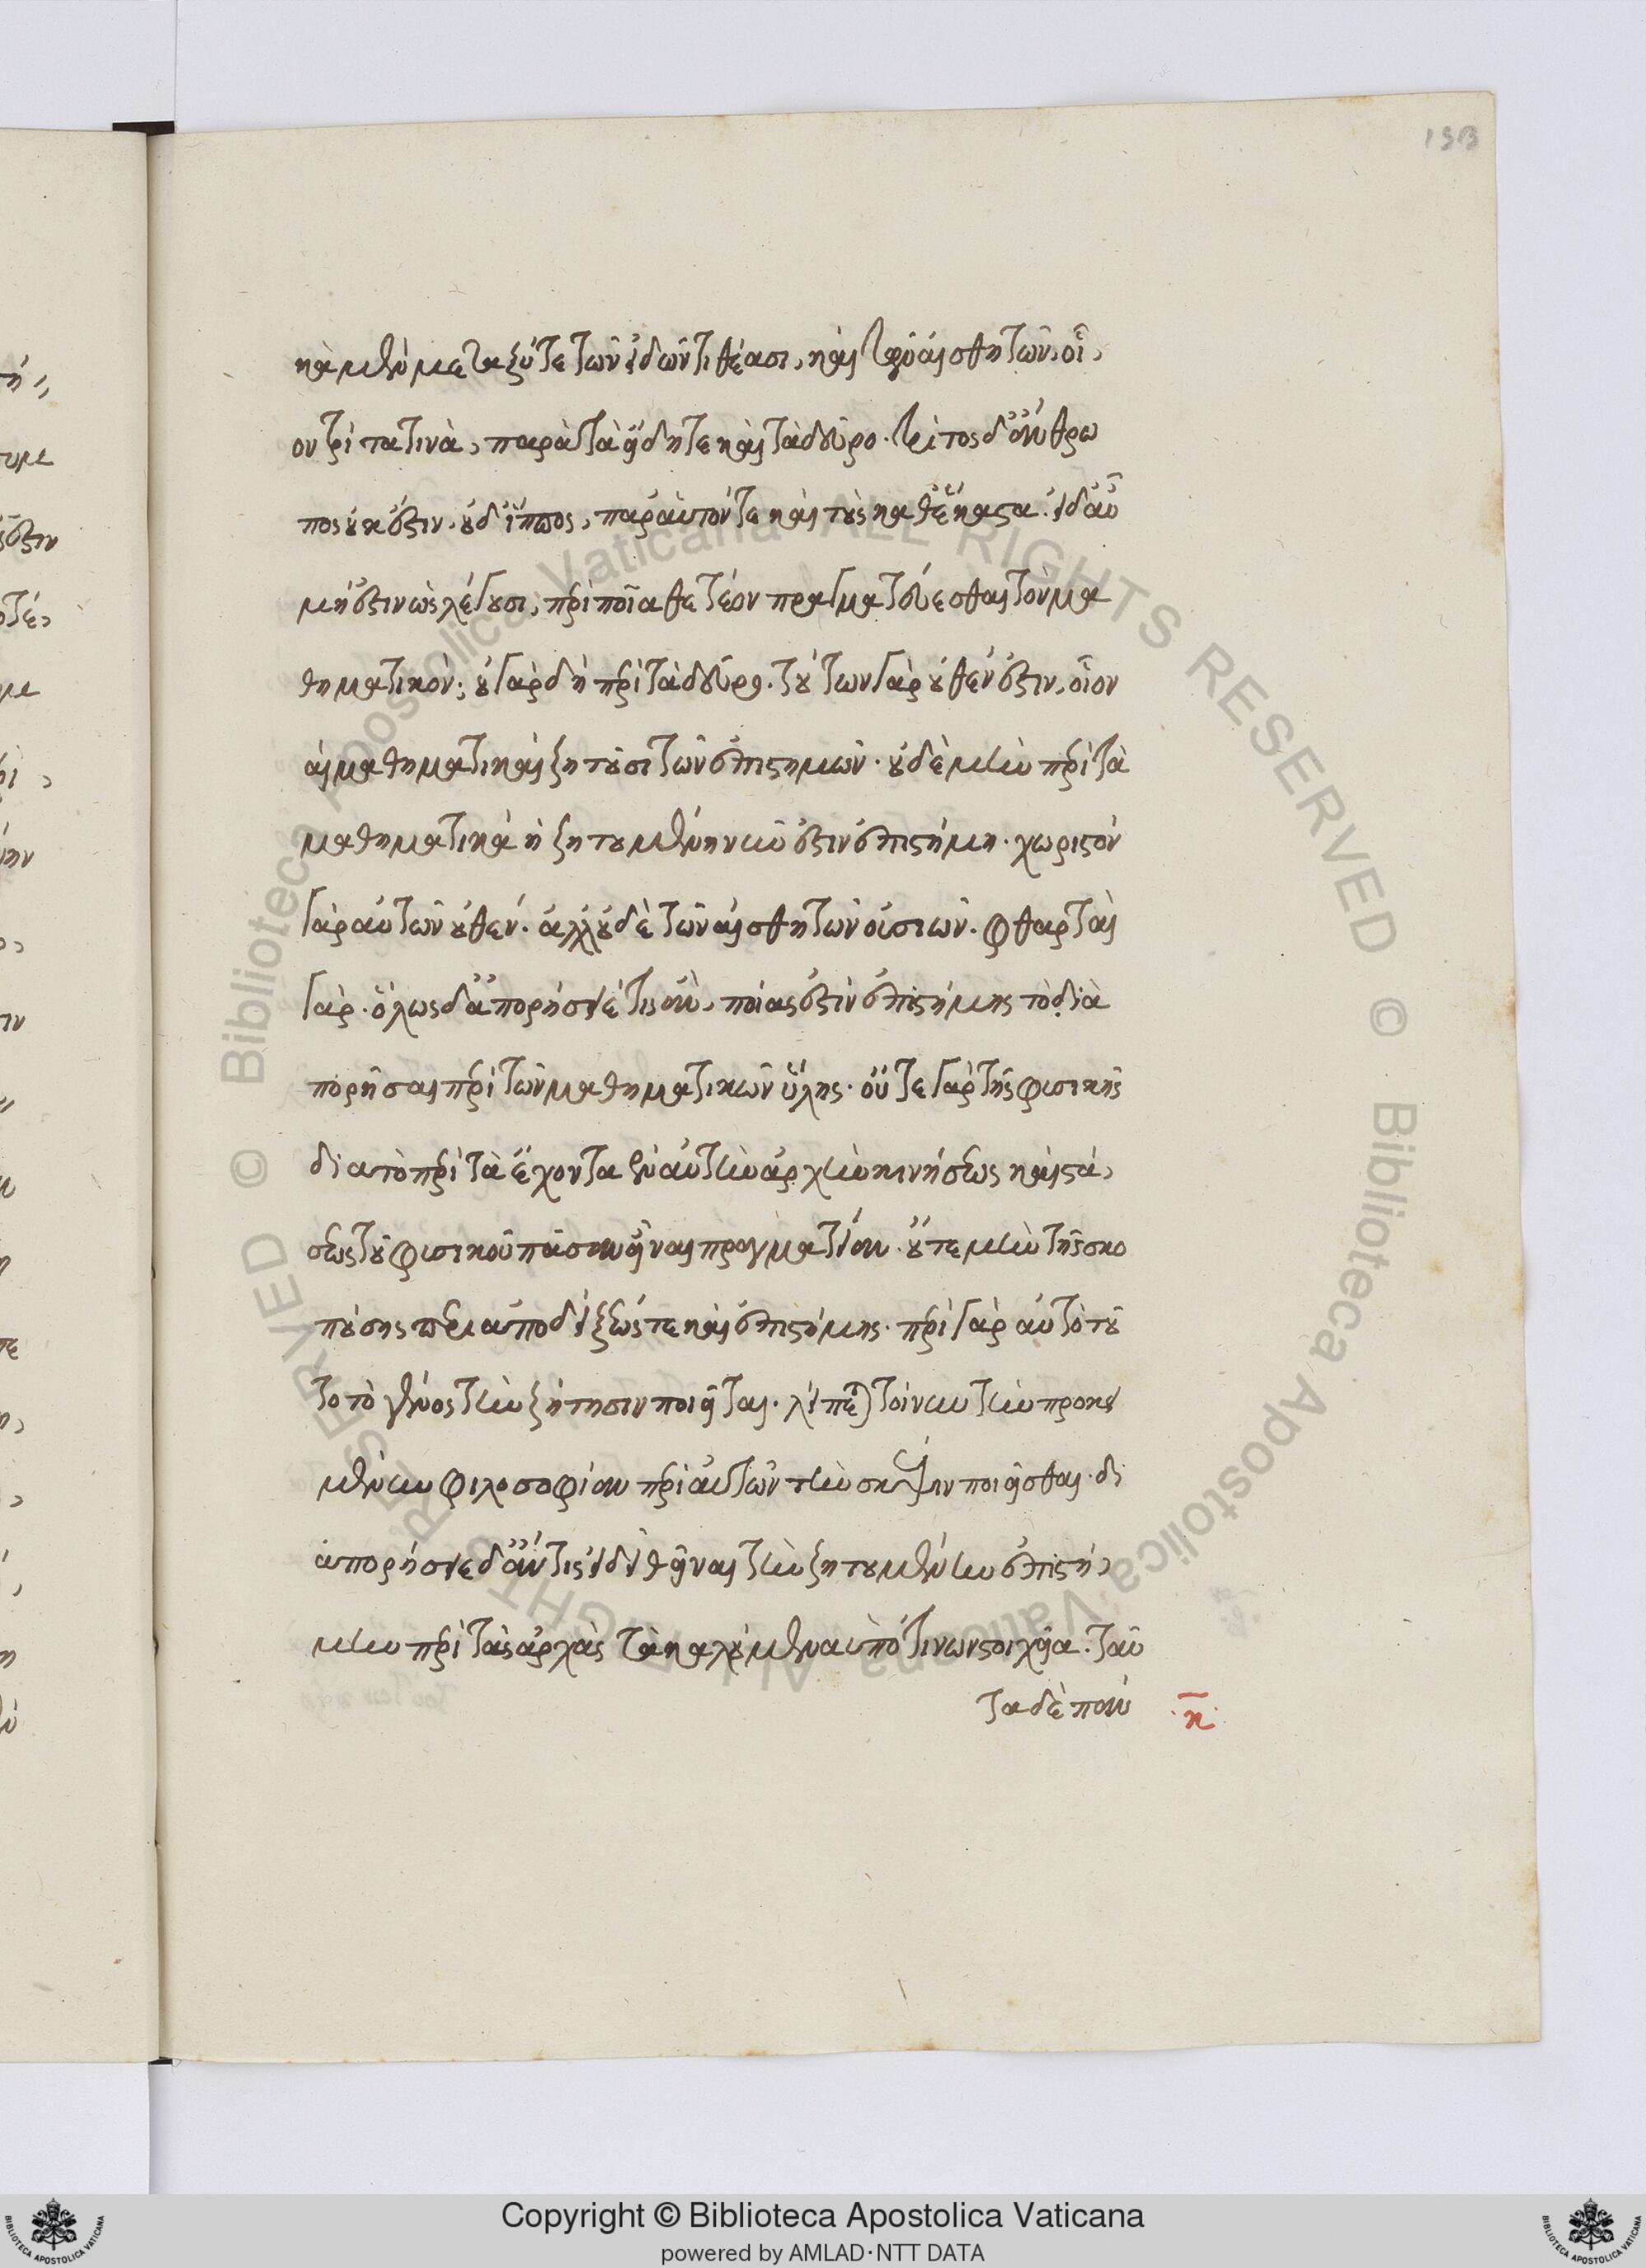 133
κὰ μὲν μεταξύ τε τῶν εἰδῶν τιθέασι, καὶ τῶν αἰσθητῶν, οἷ,
ον τρίτα τινὰ, παρὰ τὰ εἴδη τε καὶ τὰ δεῦρο. τρίτος δ' ἄνθρω
πος οὐκ ἔστιν. οὐδ' ἵππος, παρ' αὐτόν τε καὶ τοὺς καθ' ἕκαστα. εἰ δ' αὖ
μή ἐστιν ὡς λέγουσι, περὶ ποῖα θετέον πραγματεύεσθαι τὸν μα
θηματικόν; οὐ γὰρ δὴ περὶ τὰ δεῦρο. τούτων γὰρ οὐθέν ἐστιν, οἷον
αἱ μαθηματικαὶ ζητοῦσι τῶν ἐπιστημῶν. οὐδὲ μὴν περὶ τὰ
μαθηματικὰ ἡ ζητουμένη νῦν ἐστιν ἐπιστήμη. χωριστὸν
γὰρ αὐτῶν οὐθέν. ἀλλ' οὐδὲ τῶν αἰσθητῶν οὐσιῶν. φθαρταὶ
γάρ. ὅλως δ' ἀπορήσειέ τις ἂν, ποίας ἐστὶν ἐπιστήμης τὸ δια
πορῆσαι περὶ τῶν μαθηματικῶν ὕλης. οὔτε γὰρ τῆς φυσικῆς
διὰ τὸ περὶ τὰ ἔχοντα ἐν αὑτ ἀρχὴν κινήσεως καὶ στά,
σεως τοῦ φυσικοῦ πᾶσαν εἶναι πραγματείαν. οὔτε μὴν τῆς σκο
πούσης περὶ ἀποδείξεώς τε καὶ ἐπιστήμης. περὶ γὰρ αὐτὸ τοῦ
το τὸ γένος τὴν ζήτησιν ποιεῖται. λείπεται τοίνυν τὴν προκει
μένην φιλοσοφίαν περὶ αὐτῶν τὴν σκέψιν ποιεῖσθαι. δι
απορήσειε δ' ἄν τις εἰ δεῖ θεῖναι τὴν ζητουμένην ἐπιστή,
μην περὶ τὰς ἀρχὰς τὰ καλούμενα ὑπό τινων στοιχεῖα. ταῦ
τα δὲ παν
κ
Copyright © Biblioteca Apostolica Vaticana
powered by AMLAD·NTT DATA